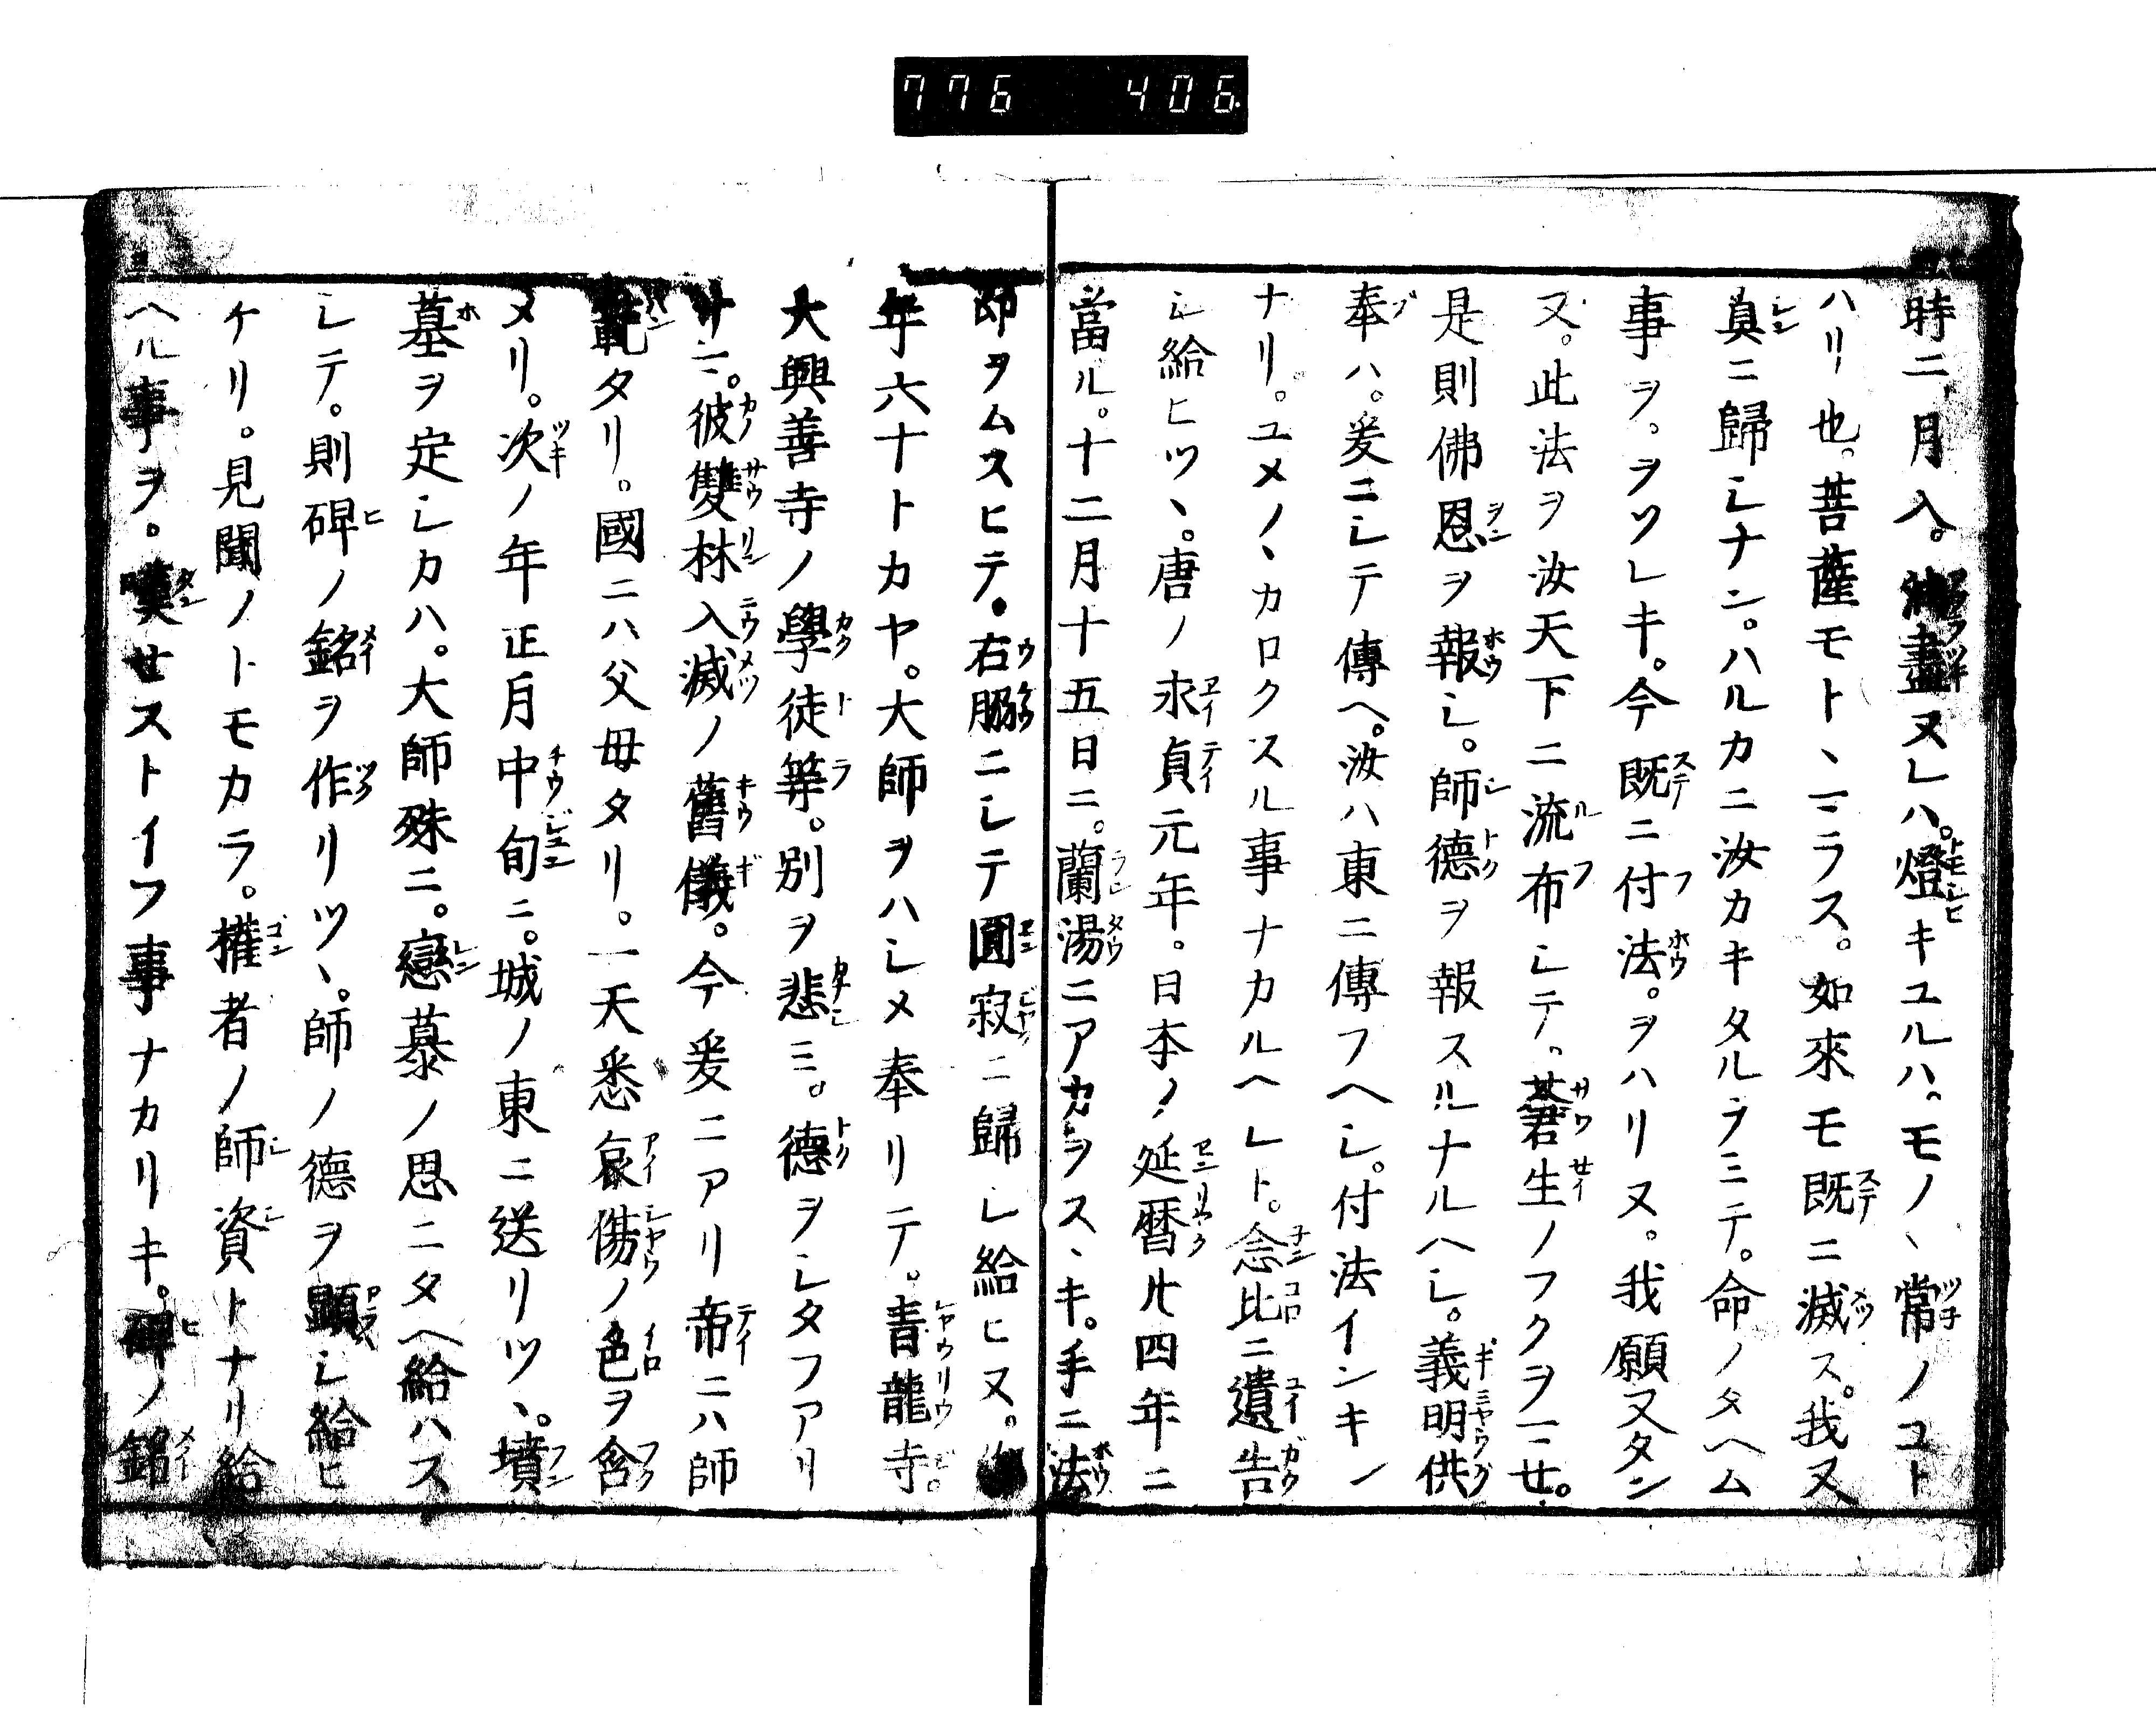 776 406
時ニ月入。油盡ヌレハ。燈キユルハ。モノヽ常ノコト
ハリ也。菩薩モトヽマラス。如來モ既ニ滅ス。我又
眞ニ歸シナン。ハルカニ汝カキタルヲミテ。命ノタヘム
事ヲ。ヲソレキ。今既ニ付法。ヲハリヌ。我願又タン
ヌ。此法ヲ汝天下ニ流布シテ。蒼生ノフクヲマセ。
是則佛恩ヲ報シ。師德ヲ報スルナルヘシ。義明供
奉ハ。爰ニシテ傳ヘ。汝ハ東ニ傳フヘシ。付法インキン
ナリ。ユメノヽカロクスル事ナカルヘシト。念比ニ遺告
シ給ヒツヽ。唐ノ永貞元年。日本ノ延曆廿四年ニ
當ル。十二月十五日ニ。蘭湯ニアカラスヽキ。手ニ法
印ヲムスヒテ。右脇ニシテ圓寂ニ歸シ給ヒヌ。
年六十トカヤ。大師ヲハシメ奉リテ。靑龍寺
大興善寺ノ學徒等。別ヲ悲ミ。德ヲシタフアリ
サマ。彼雙林入滅ノ舊儀。今爰ニアリ帝ニハ師
範タリ。國ニハ父母タリ。一天悉哀傷ノ色ヲ含
メリ。次ノ年正月中旬ニ。城ノ東ニ送リツヽ。墳
墓ヲ定シカハ。大師殊ニ。戀慕ノ思ニタヘ給ハス
シテ。則碑ノ銘ヲ作リツヽ。師ノ德ヲ顯シ給ヒ
ケリ。見聞ノトモカラ。權者ノ師資トナリ給
ヘル事ヲ。嘆セストイフ事ナカリキ。碑ノ銘